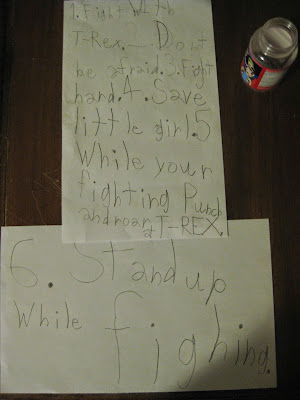 1. Fight With
T-Rex. — Dont
be afraid. 3. Fight
hard. 4. Save
little girl. 5
While your
fighting Punch
and roar
at T-REX.
6. Stand up
While fighing.